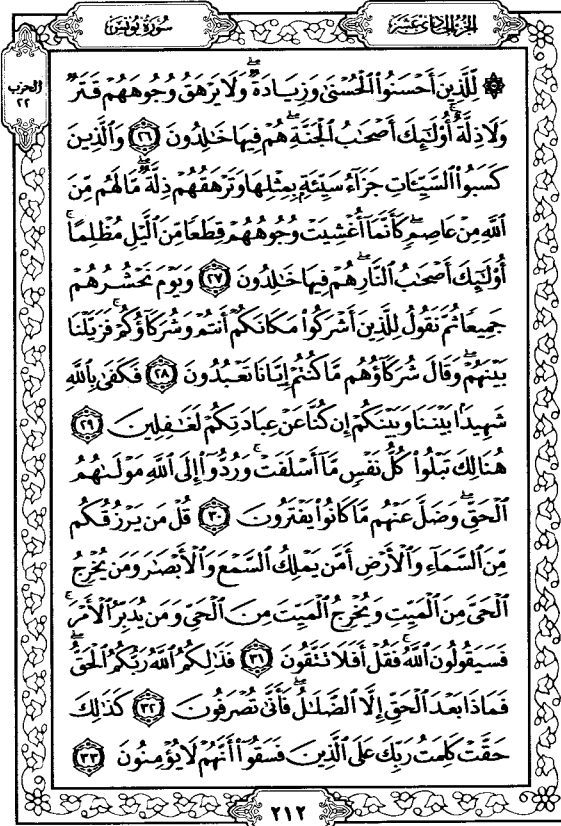 سُورَةُ يُونُسَ
الجُزْءُ الحَادِي عَشَرَ
الحزب
٢٢
۞ لِّلَّذِينَ أَحۡسَنُواْ ٱلۡحُسۡنَىٰ وَزِيَادَةٞۖ وَلَا يَرۡهَقُ وُجُوهَهُمۡ قَتَرٞ
وَلَا ذِلَّةٌۚ أُوْلَٰٓئِكَ أَصۡحَٰبُ ٱلۡجَنَّةِۖ هُمۡ فِيهَا خَٰلِدُونَ ٢٦ وَٱلَّذِينَ
كَسَبُواْ ٱلسَّيِّـَٔاتِ جَزَآءُ سَيِّئَةِۭ بِمِثۡلِهَا وَتَرۡهَقُهُمۡ ذِلَّةٞۖ مَّا لَهُم مِّنَ
ٱللَّهِ مِنۡ عَاصِمٖۖ كَأَنَّمَآ أُغۡشِيَتۡ وُجُوهُهُمۡ قِطَعٗا مِّنَ ٱلَّيۡلِ مُظۡلِمًاۚ
أُوْلَٰٓئِكَ أَصۡحَٰبُ ٱلنَّارِۖ هُمۡ فِيهَا خَٰلِدُونَ ٢٧ وَيَوۡمَ نَحۡشُرُهُمۡ
جَمِيعٗا ثُمَّ نَقُولُ لِلَّذِينَ أَشۡرَكُواْ مَكَانَكُمۡ أَنتُمۡ وَشُرَكَآؤُكُمۡۚ فَزَيَّلۡنَا
بَيۡنَهُمۡۖ وَقَالَ شُرَكَآؤُهُم مَّا كُنتُمۡ إِيَّانَا تَعۡبُدُونَ ٢٨ فَكَفَىٰ بِٱللَّهِ
شَهِيدَۢا بَيۡنَنَا وَبَيۡنَكُمۡ إِن كُنَّا عَنۡ عِبَادَتِكُمۡ لَغَٰفِلِينَ ٢٩
هُنَالِكَ تَبۡلُواْ كُلُّ نَفۡسٖ مَّآ أَسۡلَفَتۡۚ وَرُدُّوٓاْ إِلَى ٱللَّهِ مَوۡلَىٰهُمُ
ٱلۡحَقِّۖ وَضَلَّ عَنۡهُم مَّا كَانُواْ يَفۡتَرُونَ ٣٠ قُلۡ مَن يَرۡزُقُكُم
مِّنَ ٱلسَّمَآءِ وَٱلۡأَرۡضِ أَمَّن يَمۡلِكُ ٱلسَّمۡعَ وَٱلۡأَبۡصَٰرَ وَمَن يُخۡرِجُ
ٱلۡحَيَّ مِنَ ٱلۡمَيِّتِ وَيُخۡرِجُ ٱلۡمَيِّتَ مِنَ ٱلۡحَيِّ وَمَن يُدَبِّرُ ٱلۡأَمۡرَۚ
فَسَيَقُولُونَ ٱللَّهُۚ فَقُلۡ أَفَلَا تَتَّقُونَ ٣١ فَذَٰلِكُمُ ٱللَّهُ رَبُّكُمُ ٱلۡحَقُّۖ
فَمَاذَا بَعۡدَ ٱلۡحَقِّ إِلَّا ٱلضَّلَٰلُۖ فَأَنَّىٰ تُصۡرَفُونَ ٣٢ كَذَٰلِكَ
حَقَّتۡ كَلِمَتُ رَبِّكَ عَلَى ٱلَّذِينَ فَسَقُوٓاْ أَنَّهُمۡ لَا يُؤۡمِنُونَ ٣٣
٢١٢